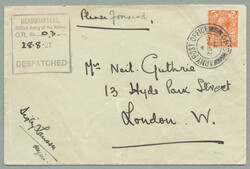 Please Forward
HEADQUARTERS,
British Army of the Rhine.
O.R. No. O.D.
28-8-21
DESPATCHED
ARMY POST OFFICE
Mrs Neil. Guthrie
13 Hyde Park Street
London. W.